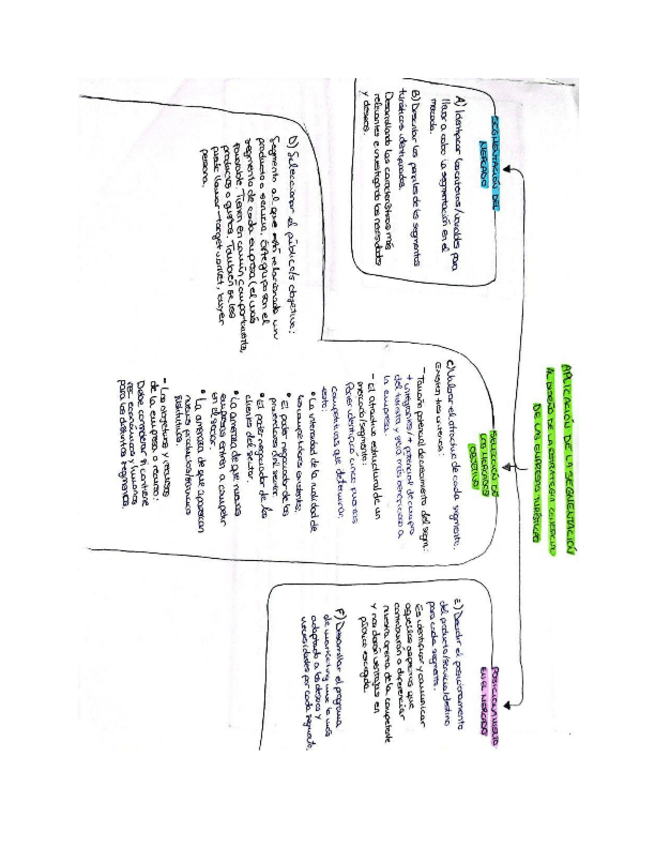 APLICACIÓN DE LA SEGMENTACIÓN
AL DISEÑO DE LA ESTRATEGIA COMERCIAL
DE LAS EMPRESAS TURÍSTICAS
SEGMENTACIÓN DEL
MERCADO
A) Identificar los criterios/variables para
llevar a cabo la segmentación en el
mercado.
B) Describir los perfiles de los segmentos
turísticos identificados.
Desarrollando las características más
relevantes e investigando las necesidades
y deseos.
SELECCIÓN DE
LOS MERCADOS
OBJETIVO
C) Valorar el atractivo de cada segmento.
Existen tres criterios:
- Tamaño potencial de crecimiento del segm:
+ integrantes/+ potencial de compra
del turista y será más beneficioso a
la empresa.
- El atractivo estructural de un
mercado/segmento:
Porter identificó cinco fuerzas
competitivas que determinan;
esto.
• La intensidad de la rivalidad de
los competidores existentes.
• El poder negociador de los
proveedores del sector.
• El poder negociador de los
clientes del sector.
• La amenaza de que nuevas
empresas entren a competir
en el sector.
• La amenaza de que aparezcan
nuevos productos/servicios
sustitutivos.
- Los objetivos y recursos
de la empresa o recurso:
Debe considerar si contiene
rec. económicos y/humanos
para los distintos segmentos.
D) Seleccionar el público/s objetivo:
Segmento al que está relacionado un
producto o servicio. Este grupo son el
segmento de cada empresa (el más
favorable. Tienen en común comportamiento,
productos o gustos. También se les
puede llamar-target market, buyer
persona.
POSICIONAMIENTO
EN EL MERCADO
E) Decidir el posicionamiento
del producto/servicio/destino
para cada segmento.
Es identificar y comunicar
aquellos aspectos que
contribuirán a diferenciar
nuestra oferta de la competente
y nos darán ventajas en
público escogido.
F) Desarrollar el programa
de marketing mix lo más
adaptado a los deseos y
necesidades por cada segmento.